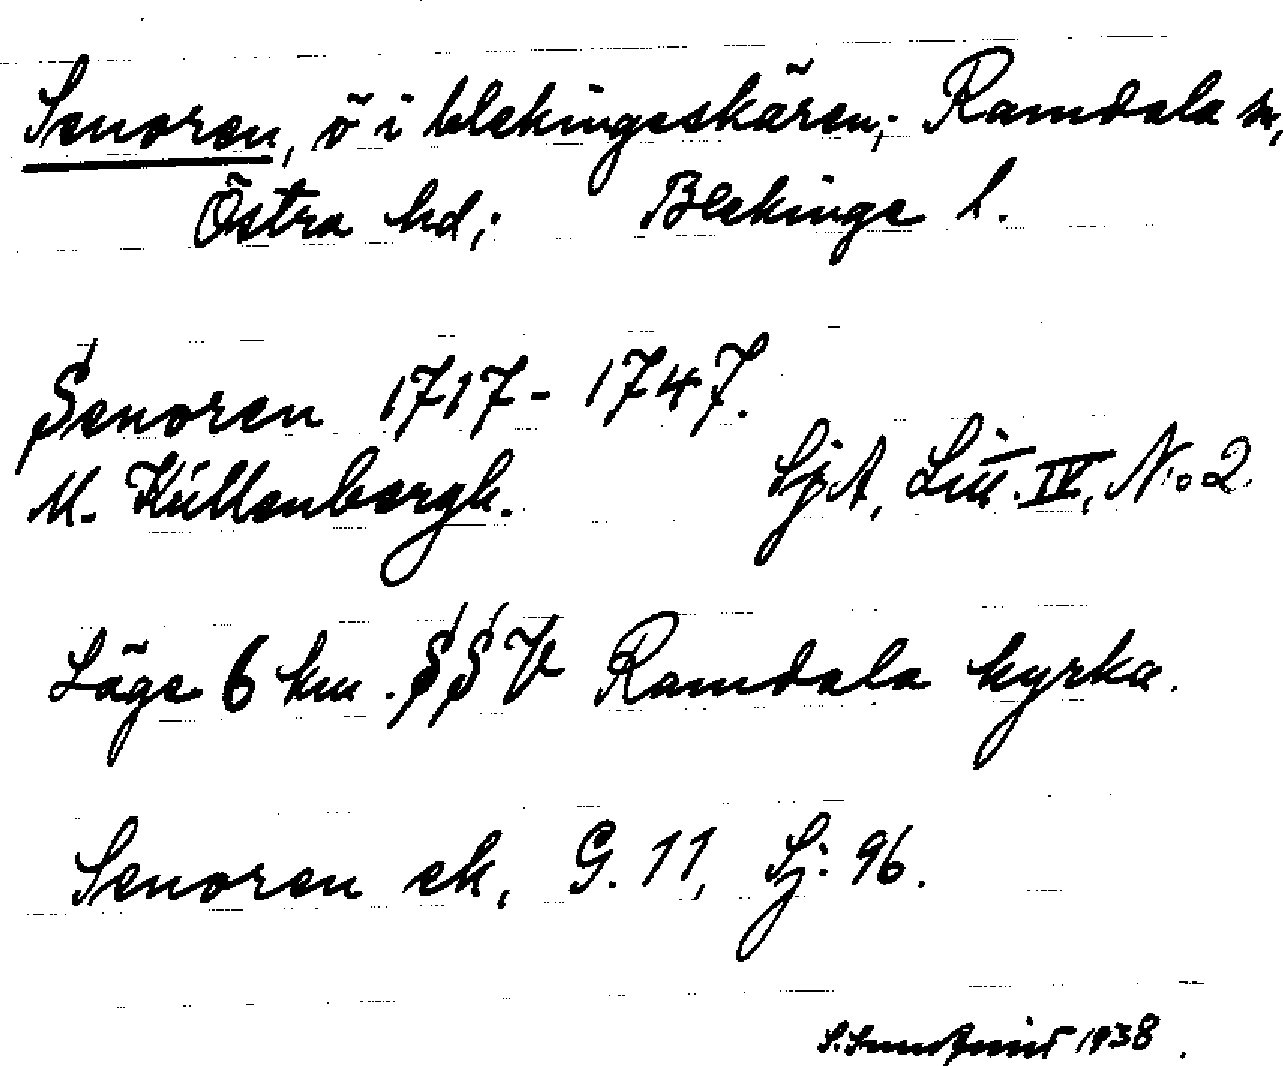 Senoren, ö i blekingeskären; Ramdala sn,
Östra hd; Blekinge l.
Senoren 1717-1747.
M. Küllenbergh. SjA, Litt. IV, No 2
Läge 6 km. SSV Ramdala kyrka.
Senoren ek, G. 11, Sj: 96.
S. Sundqvist 1938.